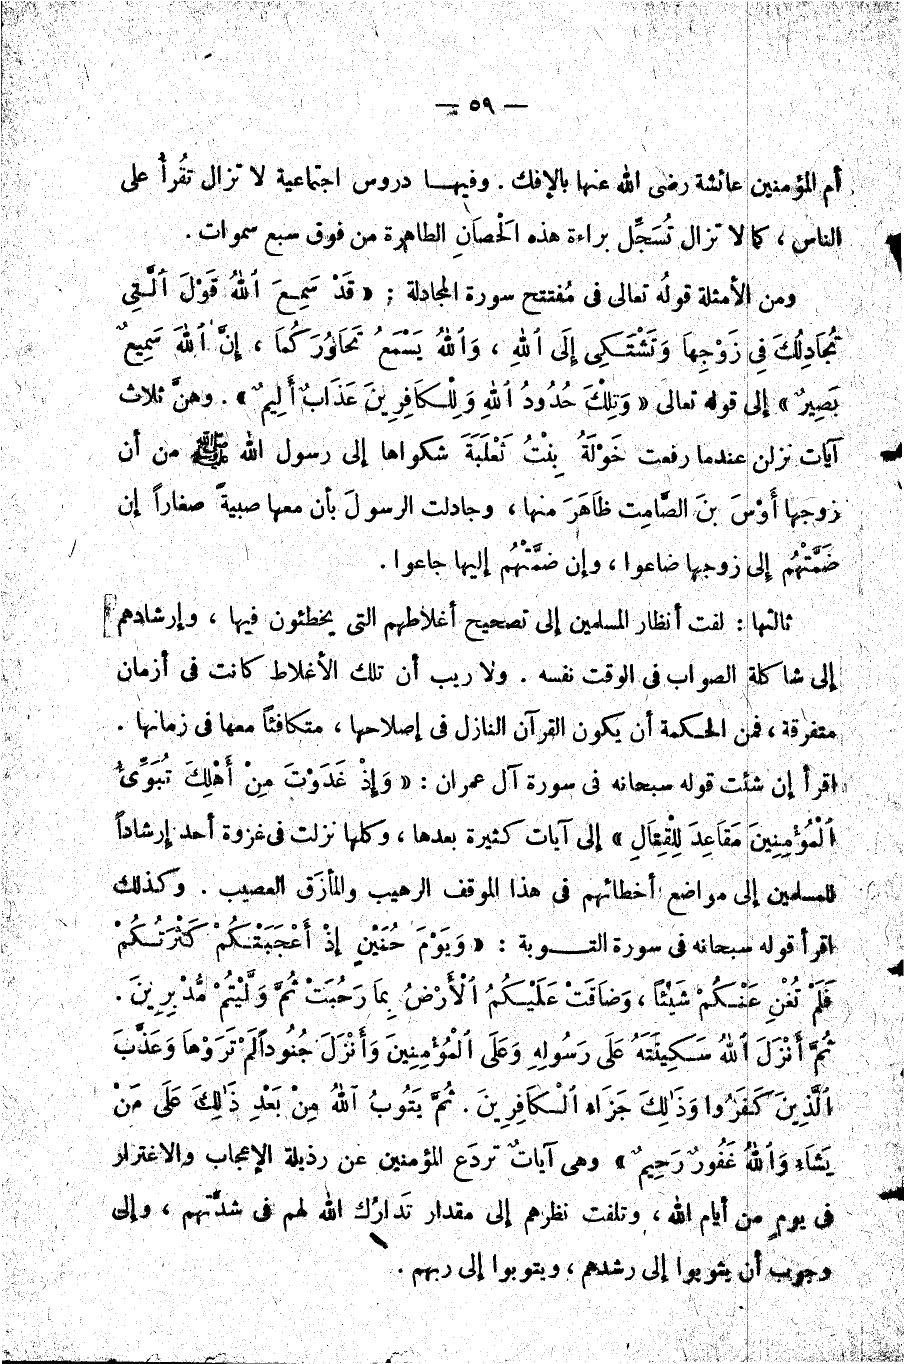 — ٥٩ —
أم المؤمنين عائشة رضى الله عنها بالإفك . وفيهـا دروس اجتماعية لا تزال تقرأُ على
الناس ، كما لا تزال تُسَجِّل براءة هذه الَحْصَانِ الطاهرة من فوق سبع سموات .
ومن الأمثلة قولُه تعالى فى مُفتتح سورة المجادلة : « قَدْ سَمِعَ ٱللهُ قَوْلَ ٱلَّتِى
تُجَادِلُكَ فِى زَوْجِهاَ وَتَشْتَـكِى إِلَى ٱللهِ ، وَٱللهُ يَسْمَعُ تَحَاوُرَكُماَ ، إِنَّ ٱللهَ سَمِيعٌ
بَصِيرٌ » إلى قوله تعالى « وَتِلْكَ حُدُودُ ٱللهِ وَلِلْـكاَفِرِينَ عَذَابٌ أَلِيمٌ » . وهنَّ ثلاث
آيات نزلن عندما رفعت خَوْلَةُ بِنْتُ ثَعْلَبَةَ شكواها إلى رسول الله ﷺ من أن
زوجها أَوْسَ بنَ الصَّامِت ظَاهَرَ منها ، وجادلت الرسولَ بأن معها صبيةً صغاراً إن
ضَمَّتْهُم إلى زوجها ضاعوا ، وإن ضمَّتْهُم إليها جاعوا .
ثالثها : لفت أنظار المسلمين إلى تصحيح أغلاطهم التى يخطئون فيها ، وإرشادهم
إلى شاكلة الصواب فى الوقت نفسه . ولا ريب أن تلك الأغلاط كانت فى أزمان
متفرقة ، فمن الحـكمة أن يكون القرآن النازل فى إصلاحها ، متكافئاً معها فى زمانها .
اقرأ إن شئت قوله سبحانه فى سورة آل عمران : « وَإِذْ غَدَوْتَ مِنْ أَهْلِكَ تُبَوِّئُ
ٱلْمُؤْمِنِينَ مَقَاعِدَ لِلْقِتَالِ » إلى آيات كثيرة بعدها ، وكلها نزلت فى غزوة أحد إرشاداً
للمسلمين إلى مواضع أخطائهم فى هذا الموقف الرهيب والمأزَق العصيب . وكذلك
اقرأ قوله سبحانه فى سورة التـوبة : « وَيَوْمَ حُنَيْنٍ إِذْ أَعْجَبَتْـكُمْ كَثْرَتُـكُمْ
فَلَمْ تُغْنِ عَنْـكُمْ شَيْئًا ، وَضَاقَتْ عَلَيْـكُمُ ٱلْأَرْضُ بِمَا رَحُبَتْ ثُمَّ وَلَّيْتُمْ مُّدْبِرِينَ .
ثُمَّ أَنْزَلَ ٱللهُ سَـكِينَتَهُ عَلَى رَسُولِهِ وَعَلَى ٱلْمُؤْمِنِينَ وَأَنْزَلَ جُنُوداً لَمْ تَرَوْهاَ وَعَذَّبَ
ٱلَّذِينَ كَـفَرُوا وَذَٰلِكَ جَزَاء ٱلْـكاَفِرِينَ . ثُمَّ يَتُوبُ ٱللهُ مِنْ بَعْدِ ذَٰلِكَ عَلَى مَنْ
يَشَاء وَٱللهُ غَفُورٌ رَحِيمٌ » وهى آياتٌ تردَع المؤمنين عن رذيلة الإعجاب والاغترار
فى يوم من أيام الله ، وتلفت نظرهم إلى مقدار تَدارُك الله لهم فى شدَّتهم ، وإلى
وجوب أن يثوبوا إلى رشدهم ، ويتوبوا إلى ربهم .